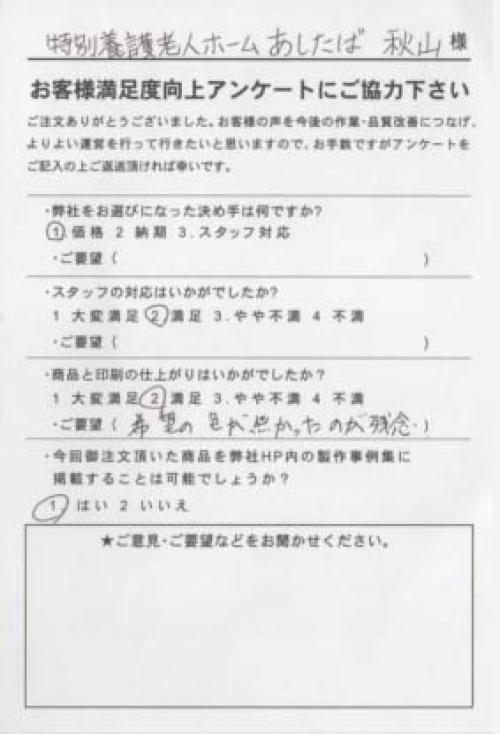 特別養護老人ホーム あしたば 秋山 様
お客様満足度向上アンケートにご協力下さい
ご注文ありがとうございました。お客様の声を今後の作業・品質改善につなげ、
よりよい運営を行って行きたいと思いますので、お手数ですがアンケートを
ご記入の上ご返送頂ければ幸いです。
・弊社をお選びになった決め手は何ですか?
1.価格 2 納期 3.スタッフ対応
・ご要望( )
・スタッフの対応はいかがでしたか?
1 大変満足 2 満足 3.やや不満 4 不満
・ご要望( )
・商品と印刷の仕上がりはいかがでしたか?
1 大変満足 2 満足 3.やや不満 4 不満
・ご要望(希望の色が無かったのが残念・)
・今回御注文頂いた商品を弊社HP内の製作事例集に
掲載することは可能でしょうか?
1 はい 2 いいえ
★ご意見・ご要望などをお聞かせください。